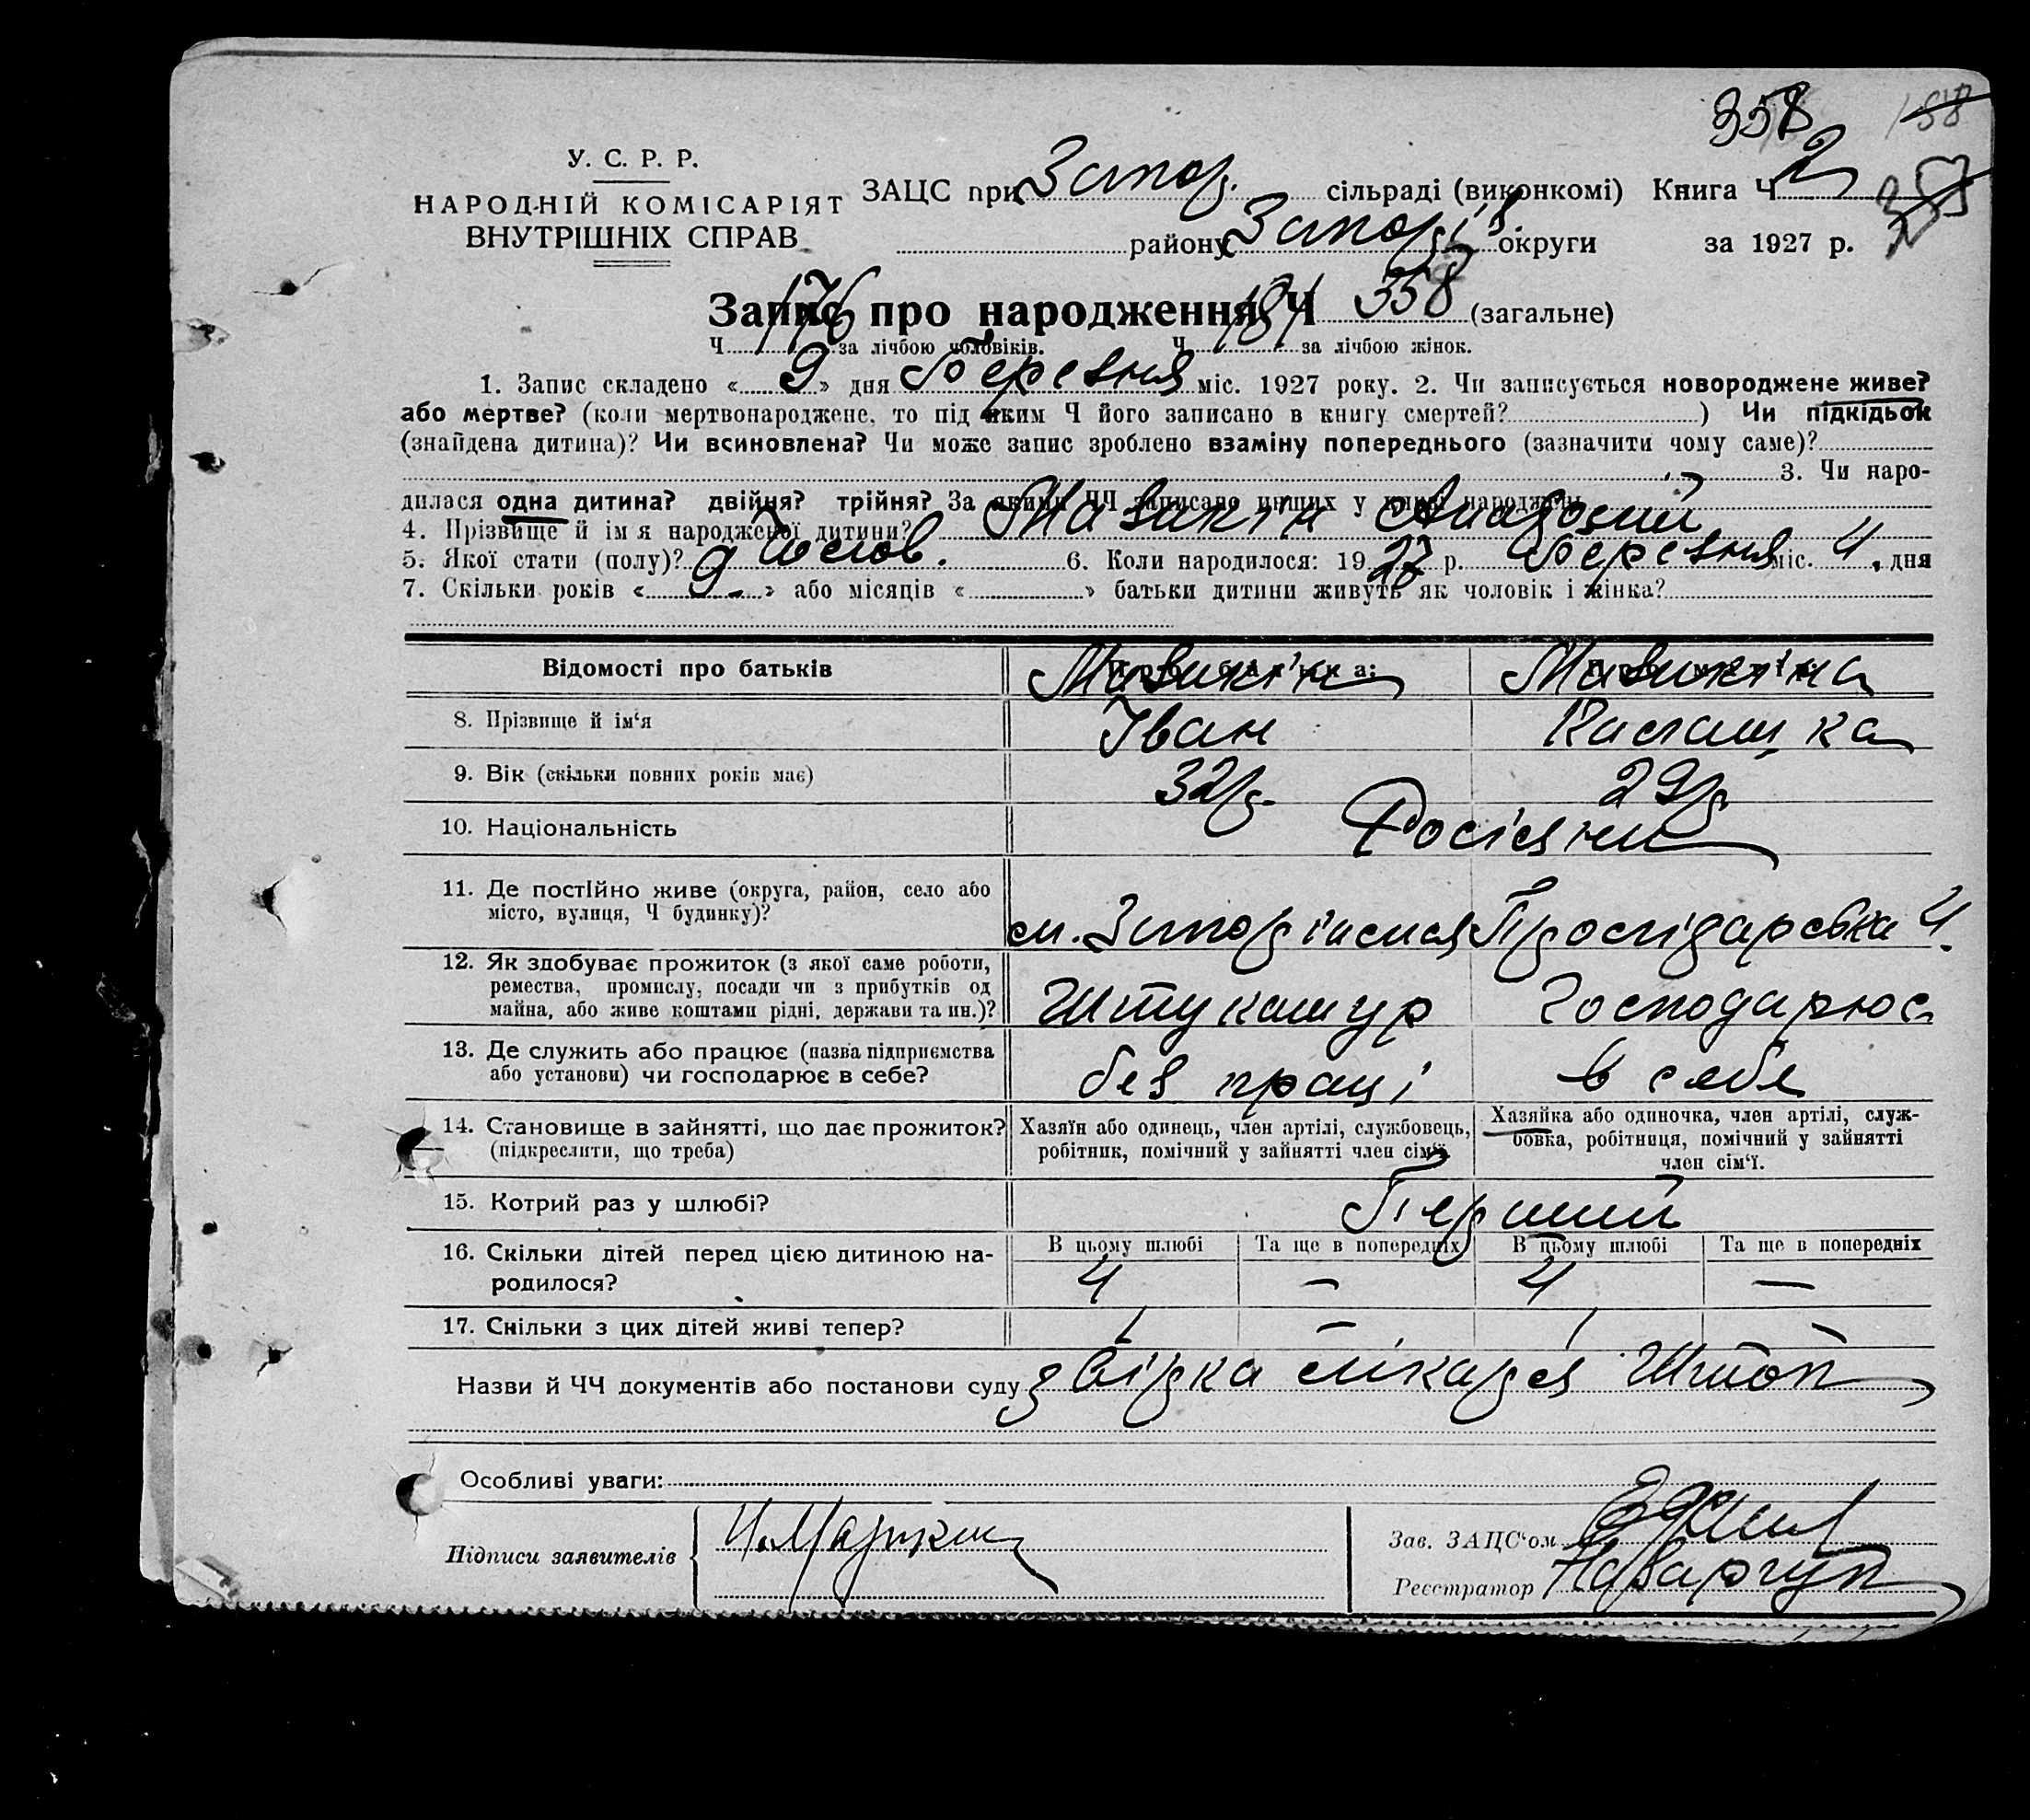 358 158
У. С. Р. Р.
НАРОДНІЙ КОМІСАРІЯТ
ВНУТРІШНІХ СПРАВ
ЗАЦС при Запор. сільраді (виконкомі) Книга Ч 2
району Запоріз. округи за 1927 р.
Запис про народження Ч 358 (загальне)
Ч 176 за лічбою чоловіків. Ч 181 за лічбою жінок.
1. Запис складено « 9 » дня Березня міс. 1927 року. 2. Чи записується новороджене живе?
або мертве? (коли мертвонароджене, то під яким Ч його записано в книгу смертей? ) Чи підкідьок
(знайдена дитина)? Чи всиновлена? Чи може запис зроблено взаміну попереднього (зазначити чому саме)?
3. Чи наро-
дилася одна дитина? двійня? трійня? За якими ЧЧ записано инших у книзі народжень
4. Прізвище й ім я народженої дитини?
5. Якої стати (полу)? Чолов. 6. Коли народилося: 19 27 р. Березня міс. 4 дня
7. Скільки років « 9 » або місяців « » батьки дитини живуть як чоловік і жінка?
Відомості про батьків
8. Прізвище й ім‘я Іван
9. Вік (скільки повних років має) 32 р. 29 р.
10. Національність Росіяни
11. Де постійно живе (округа, район, село або
місто, вулиця, Ч будинку)? м. Запоріжжя 4
12. Як здобуває прожиток (з якої саме роботи,
ремества, промислу, посади чи з прибутків од
майна, або живе коштами рідні, держави та ин.)? Штукатур Господарює
13. Де служить або працює (назва підприємства
або установи) чи господарює в себе? без праці в себе
14. Становище в зайнятті, що дає прожиток?
(підкреслити, що треба)
Хазяїн або одинець, член артілі, службовець,
робітник, помічний у зайнятті член сім‘ї.
Хазяйка або одиночка, член артілі, служ-
бовка, робітниця, помічний у зайнятті
член сім‘ї.
15. Котрий раз у шлюбі? Перший
16. Скільки дітей перед цією дитиною на-
родилося?
В цьому шлюбі Та ще в попередніх В цьому шлюбі Та ще в попередніх
4 — 4 —
17. Скільки з цих дітей живі тепер? 1 — 1 —
Назви й ЧЧ документів або постанови суду довідка лікаря
Особливі уваги:
Підписи заявителів
Зав. ЗАЦС‘ом
Реєстратор